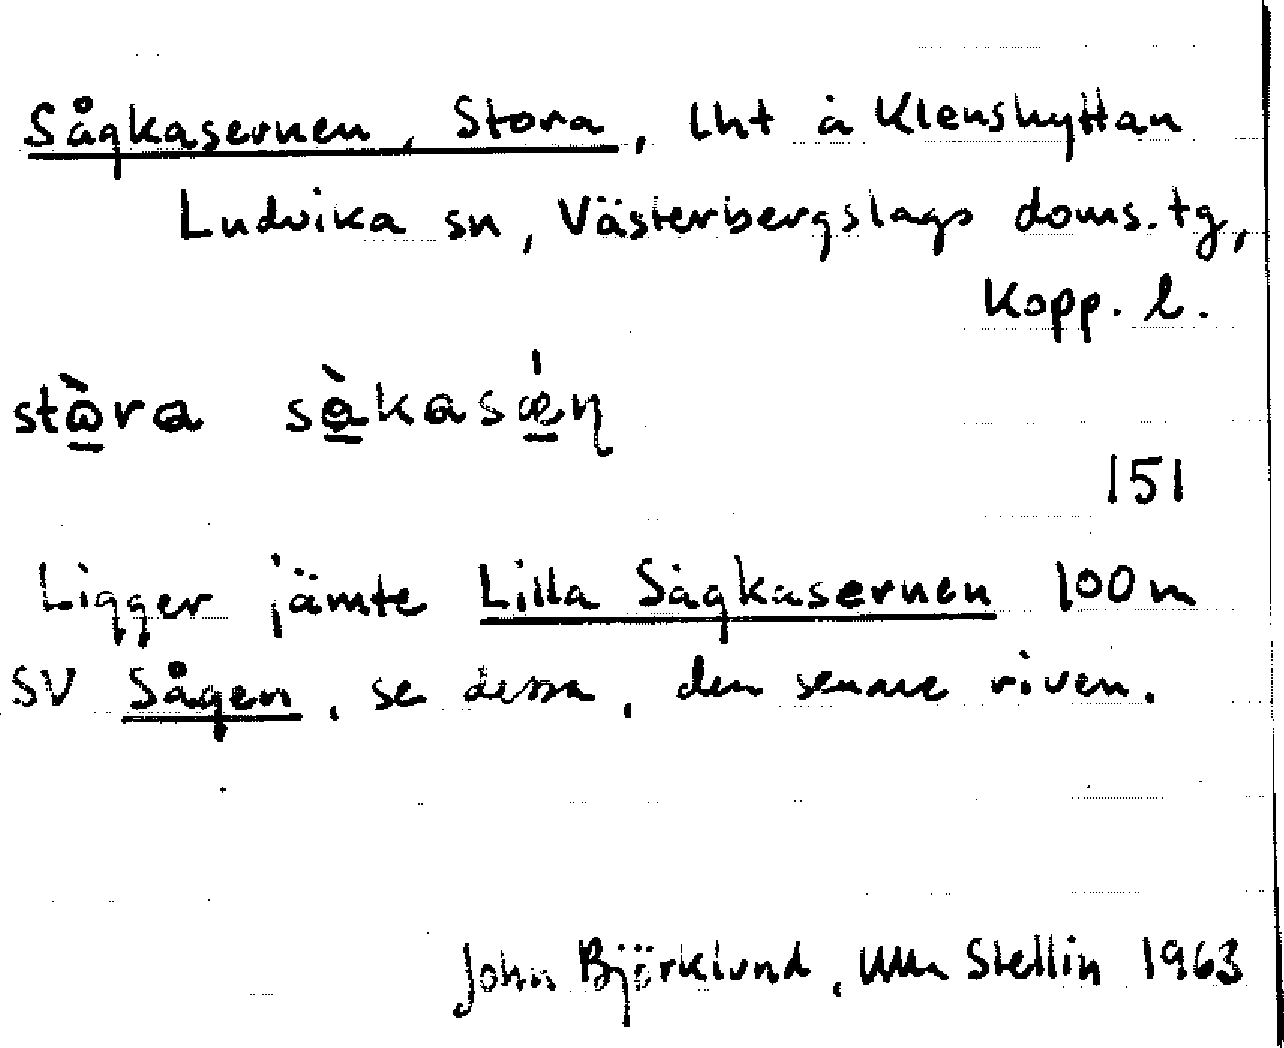 Sågkasernen, Stora, lht å Klenshyttan
Ludvika sn, Västerbergslags doms.tg,
Kopp. l.
151
Ligger jämte Lilla Sågkasernen 100 m
SV Sågen, se dessa, den senare riven.
John Björklund, Ulla Stellin 1963